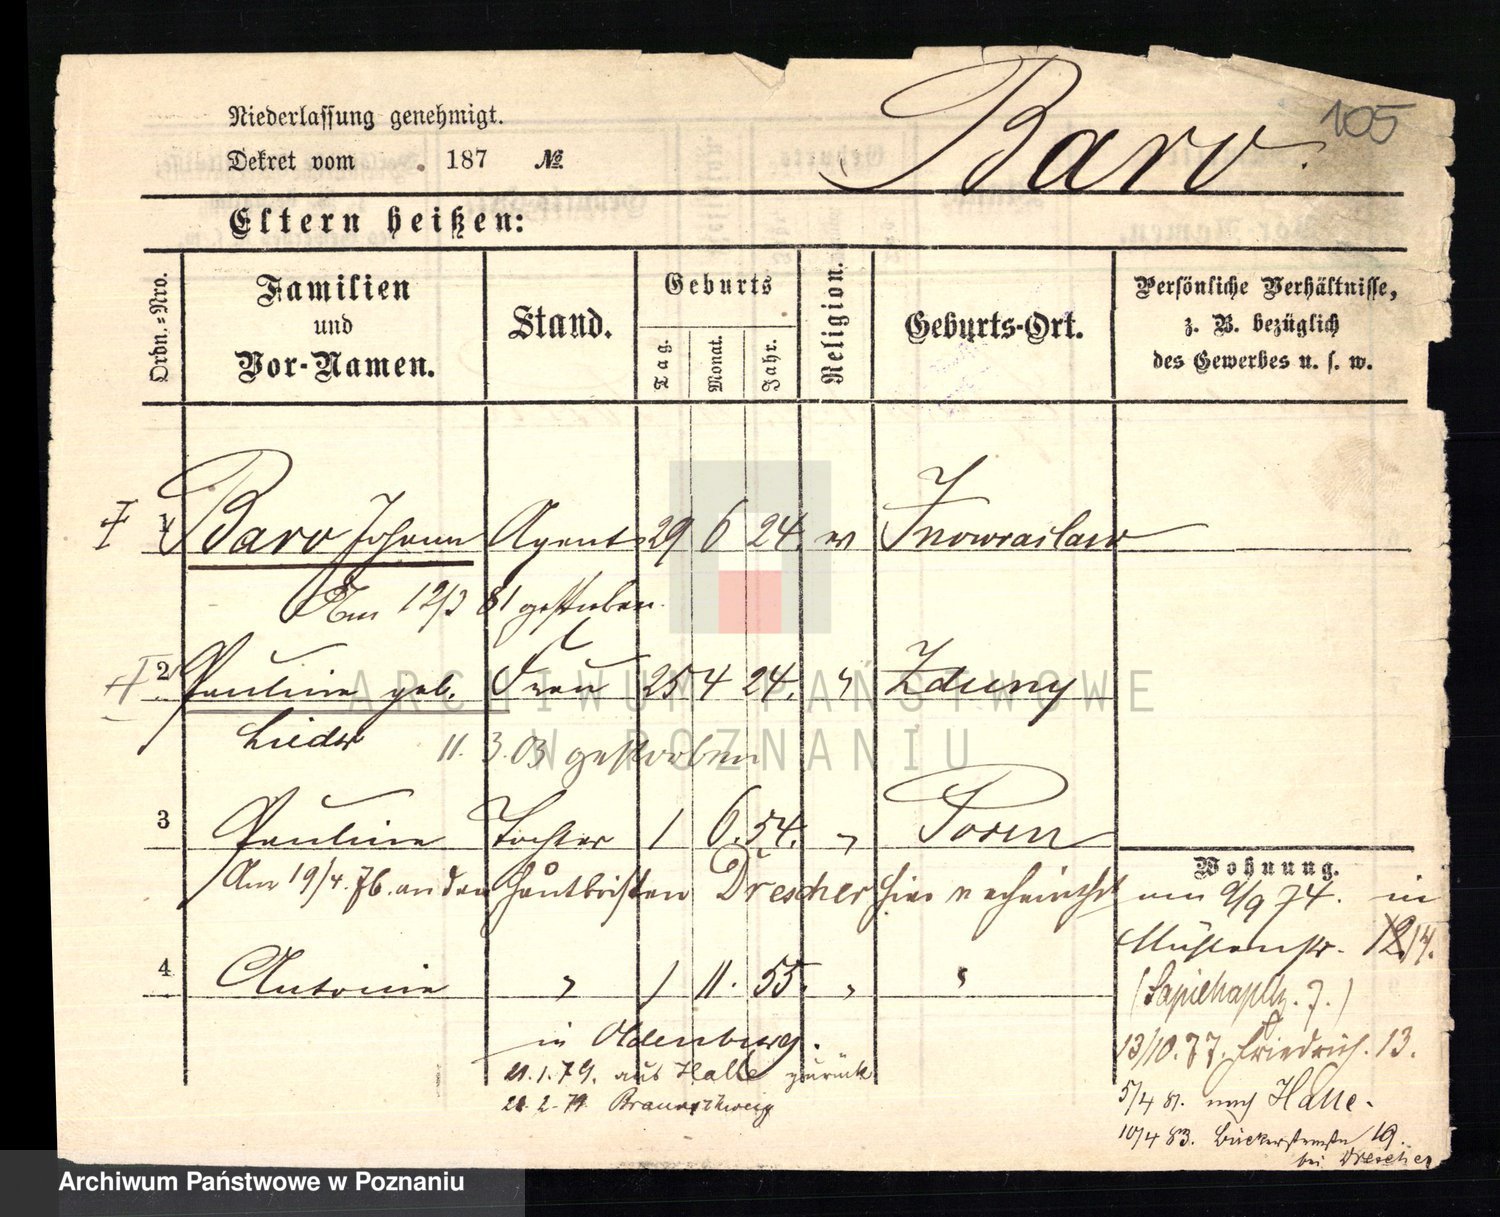 105
Niederlassung genehmigt.
Dekret vom . 187 №
Baro.
Eltern heißen:
Ordn.-Nro.
Familien und Vor-Namen.
Stand.
Geburts
Tag. Monat. Jahr.
Religion.
Geburts-Ort.
Persönliche Verhältnisse, z. B. bezüglich des Gewerbes u. s. w.
1 Baro Johann Agent 29 6 24. ev Inowraclaw
Am 12/3 81 gestorben.
2 Pauline geb. Frau 25 4 24. " Zduny
Lieder 11. 3. 03 gestorben
3 Pauline Tochter 1 6. 54. " Posen
Am 19/4. 76. an den Hautboisten Drescher hier verheirathet
4 Antonie " 1 11. 55. " "
in Oldenburg.
21. 1. 79. aus Halle zurück
2. 79 Braunschweig
Wohnung.
am 9/9 74. in
Mühlenstr. 12 14.
(Sapiehapltz. 7.)
13/10. 77. Friedrich. 13.
5/4 81. nach Halle.
10/4 83. Bäckerstraße 19.
bei Drescher
ARCHIWUM PAŃSTWOWE
W POZNANIU
Archiwum Państwowe w Poznaniu